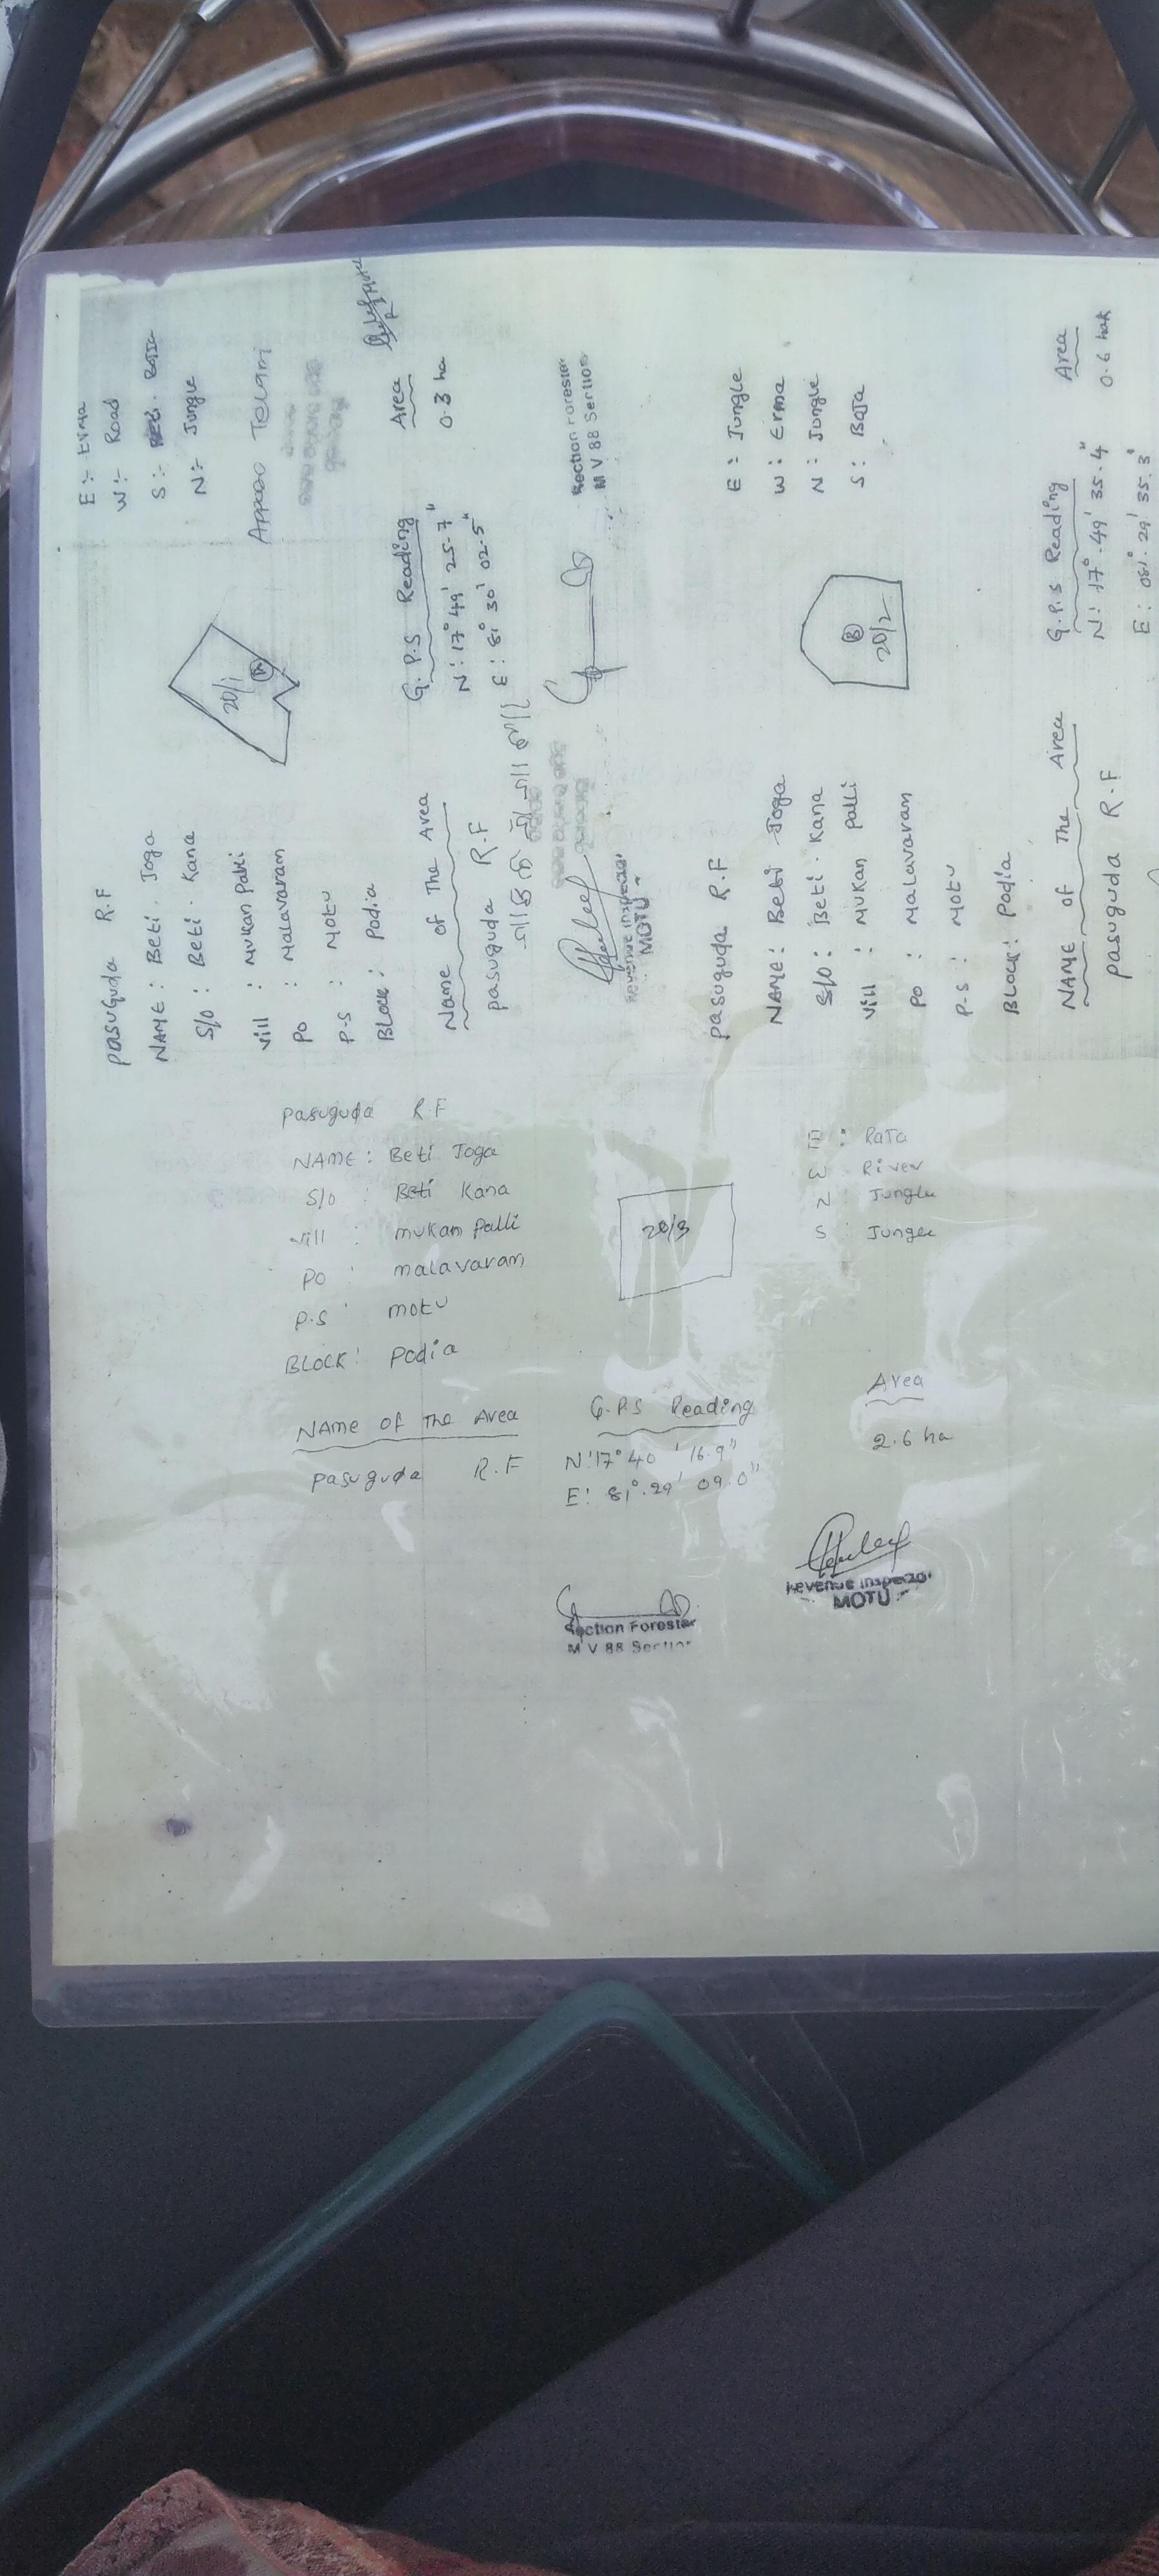 pasuguda R.F
NAME : Beti . Joga
S/o : Beti . Kana
vill : Mukan Palli
PO : Malavaram
P.S : Motu
Block : Podia
E :- Erma
W :- Road
S :- Baja
N :- Jungle
20/1
A
Name of The Area
pasuguda R.F
G.P.S Reading
N : 17° 49' 25.7"
E : 81° 30' 02.5"
Area
0.3 ha
Revenue Inspector
MOTU
Section Forester
M V 88 Section
pasuguda R.F
NAME : Beti Joga
S/o : Beti . Kana
vill : Mukan palli
PO : Malavaram
P.S : Motu
Block : Podia
B
20/2
E : Jungle
W : Erma
N : Jungle
S : Baja
NAME of The Area
pasuguda R.F
G.P.S Reading
N : 17° . 49' 35.4"
E : 081° . 29' 35.3"
Area
0.6 hak
pasuguda R.F
NAME : Beti Joga
S/o : Beti Kana
vill : mukam palli
PO : malavaram
P.S : motu
BLOCK : Podia
20/3
E : RaJa
W River
N Jungle
S Jungle
NAME OF The Area
pasuguda R.F
G.P.S Reading
N : 17° 40' 16.9"
E : 81° . 29' 09.0"
Area
2.6 ha
Section Forester
M V 88 Section
Revenue Inspector
MOTU